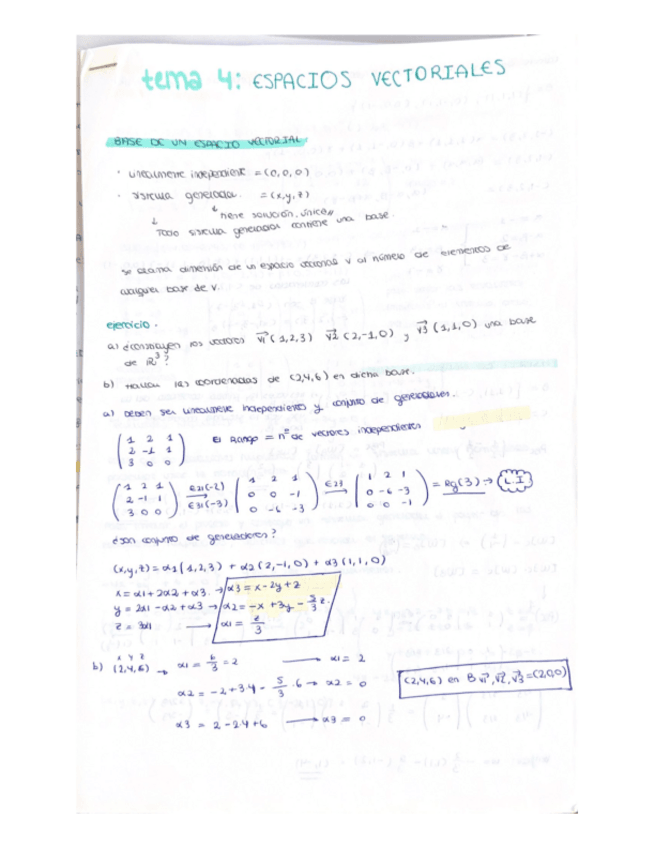 tema 4: ESPACIOS VECTORIALES
BASE DE UN ESPACIO VECTORIAL:
· linealmente independiente = (0,0,0)
· sistema generador. = (x,y,z)
↓ ↳ tiene solución única
Todo sistema generador contiene una base.
se llama dimensión de un espacio vectorial V al número de elementos de
cualquier base de V.
ejercicio.
a) ¿constituyen los vectores v1 (1,2,3) v2 (2,-1,0) y v3 (1,1,0) una base
de R³?
b) Hallar las coordenadas de (2,4,6) en dicha base.
a) Deben ser linealmente independientes y conjunto de generadores.
( 1 2 1 ) El Rango = nº de vectores independientes
( 2 -1 1 )
( 3 0 0 )
( 1 2 1 ) E21(-2) ( 1 2 1 ) E23 ( 1 2 1 )
( 2 -1 1 ) → ( 0 0 -1 ) → ( 0 -6 -3 ) = Rg(3) → L.I
( 3 0 0 ) E31(-3) ( 0 -6 -3 ) ( 0 0 -1 )
¿son conjunto de generadores?
(x,y,z) = α1 (1,2,3) + α2 (2,-1,0) + α3 (1,1,0)
x = α1 + 2α2 + α3 → α3 = x - 2y + z
y = 2α1 - α2 + α3 → α2 = -x + 3y - 5/3 z.
z = 3α1 → α1 = z/3
x y z
b) (2,4,6) → α1 = 6/3 = 2 → α1 = 2
α2 = -2 + 3·4 - 5/3 · 6 → α2 = 0
(2,4,6) en B v1, v2, v3 = (2,0,0)
α3 = 2 - 2·4 + 6 → α3 = 0